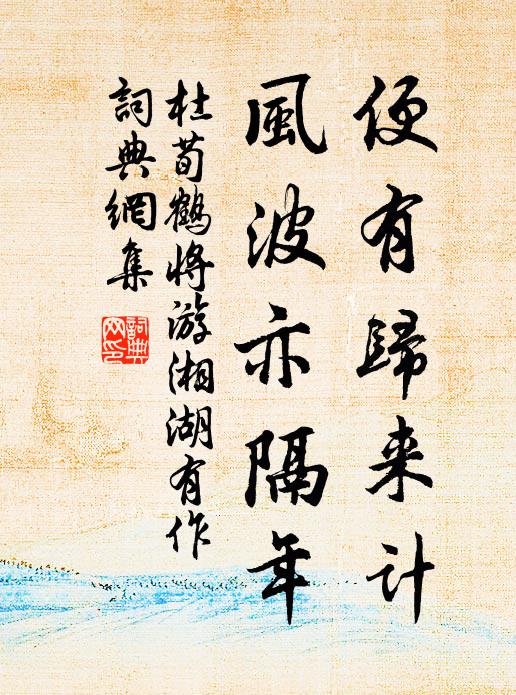 便有歸来计
風波亦隔年
杜荀鶴将游湘湖有作
詞典網集
詞典
网印